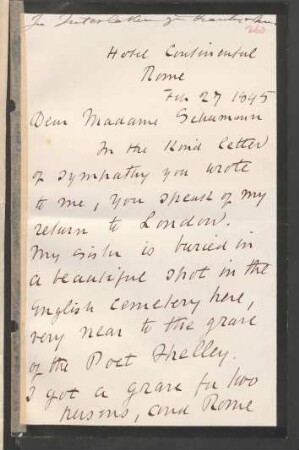 Hotel Continental
Rome
Feb 27 1895
Dear Madame Schumann
In the kind letter
of sympathy you wrote
to me, you speak of my
return to London.
My sister is buried in
a beautiful spot in the
English cemetery here,
very near to the grave
of the Poet Shelley.
I got a grave for two
persons, and Rome